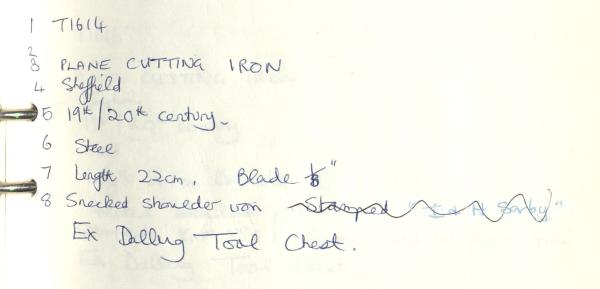 1 T1614
2
3 PLANE CUTTING IRON
4 Sheffield
5 19th/20th century.
6 Steel
7 Length 22cm. Blade 1/8"
8 Snecked shoulder iron Stamped "I & H Sorby"
Ex Dalling Tool Chest.